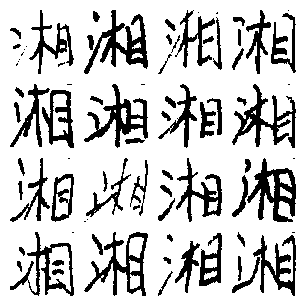 湘湘湘湘
湘湘湘湘
湘湘湘湘
湘湘湘湘